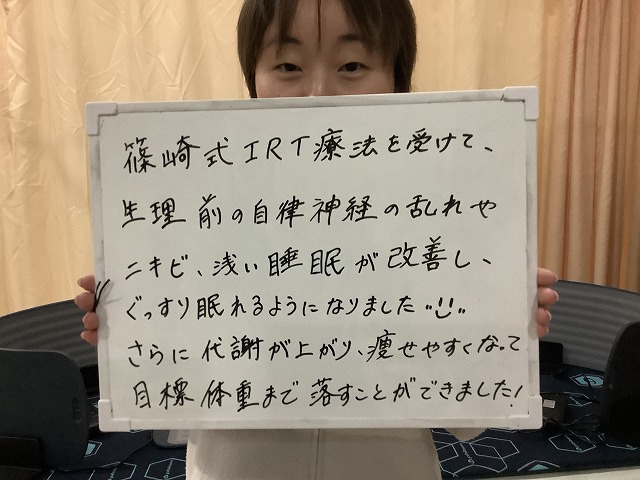 篠崎式IRT療法を受けて、
生理前の自律神経の乱れや
ニキビ、浅い睡眠が改善し、
ぐっすり眠れるようになりました
さらに代謝が上がり、痩せやすくなって
目標体重まで落すことができました!